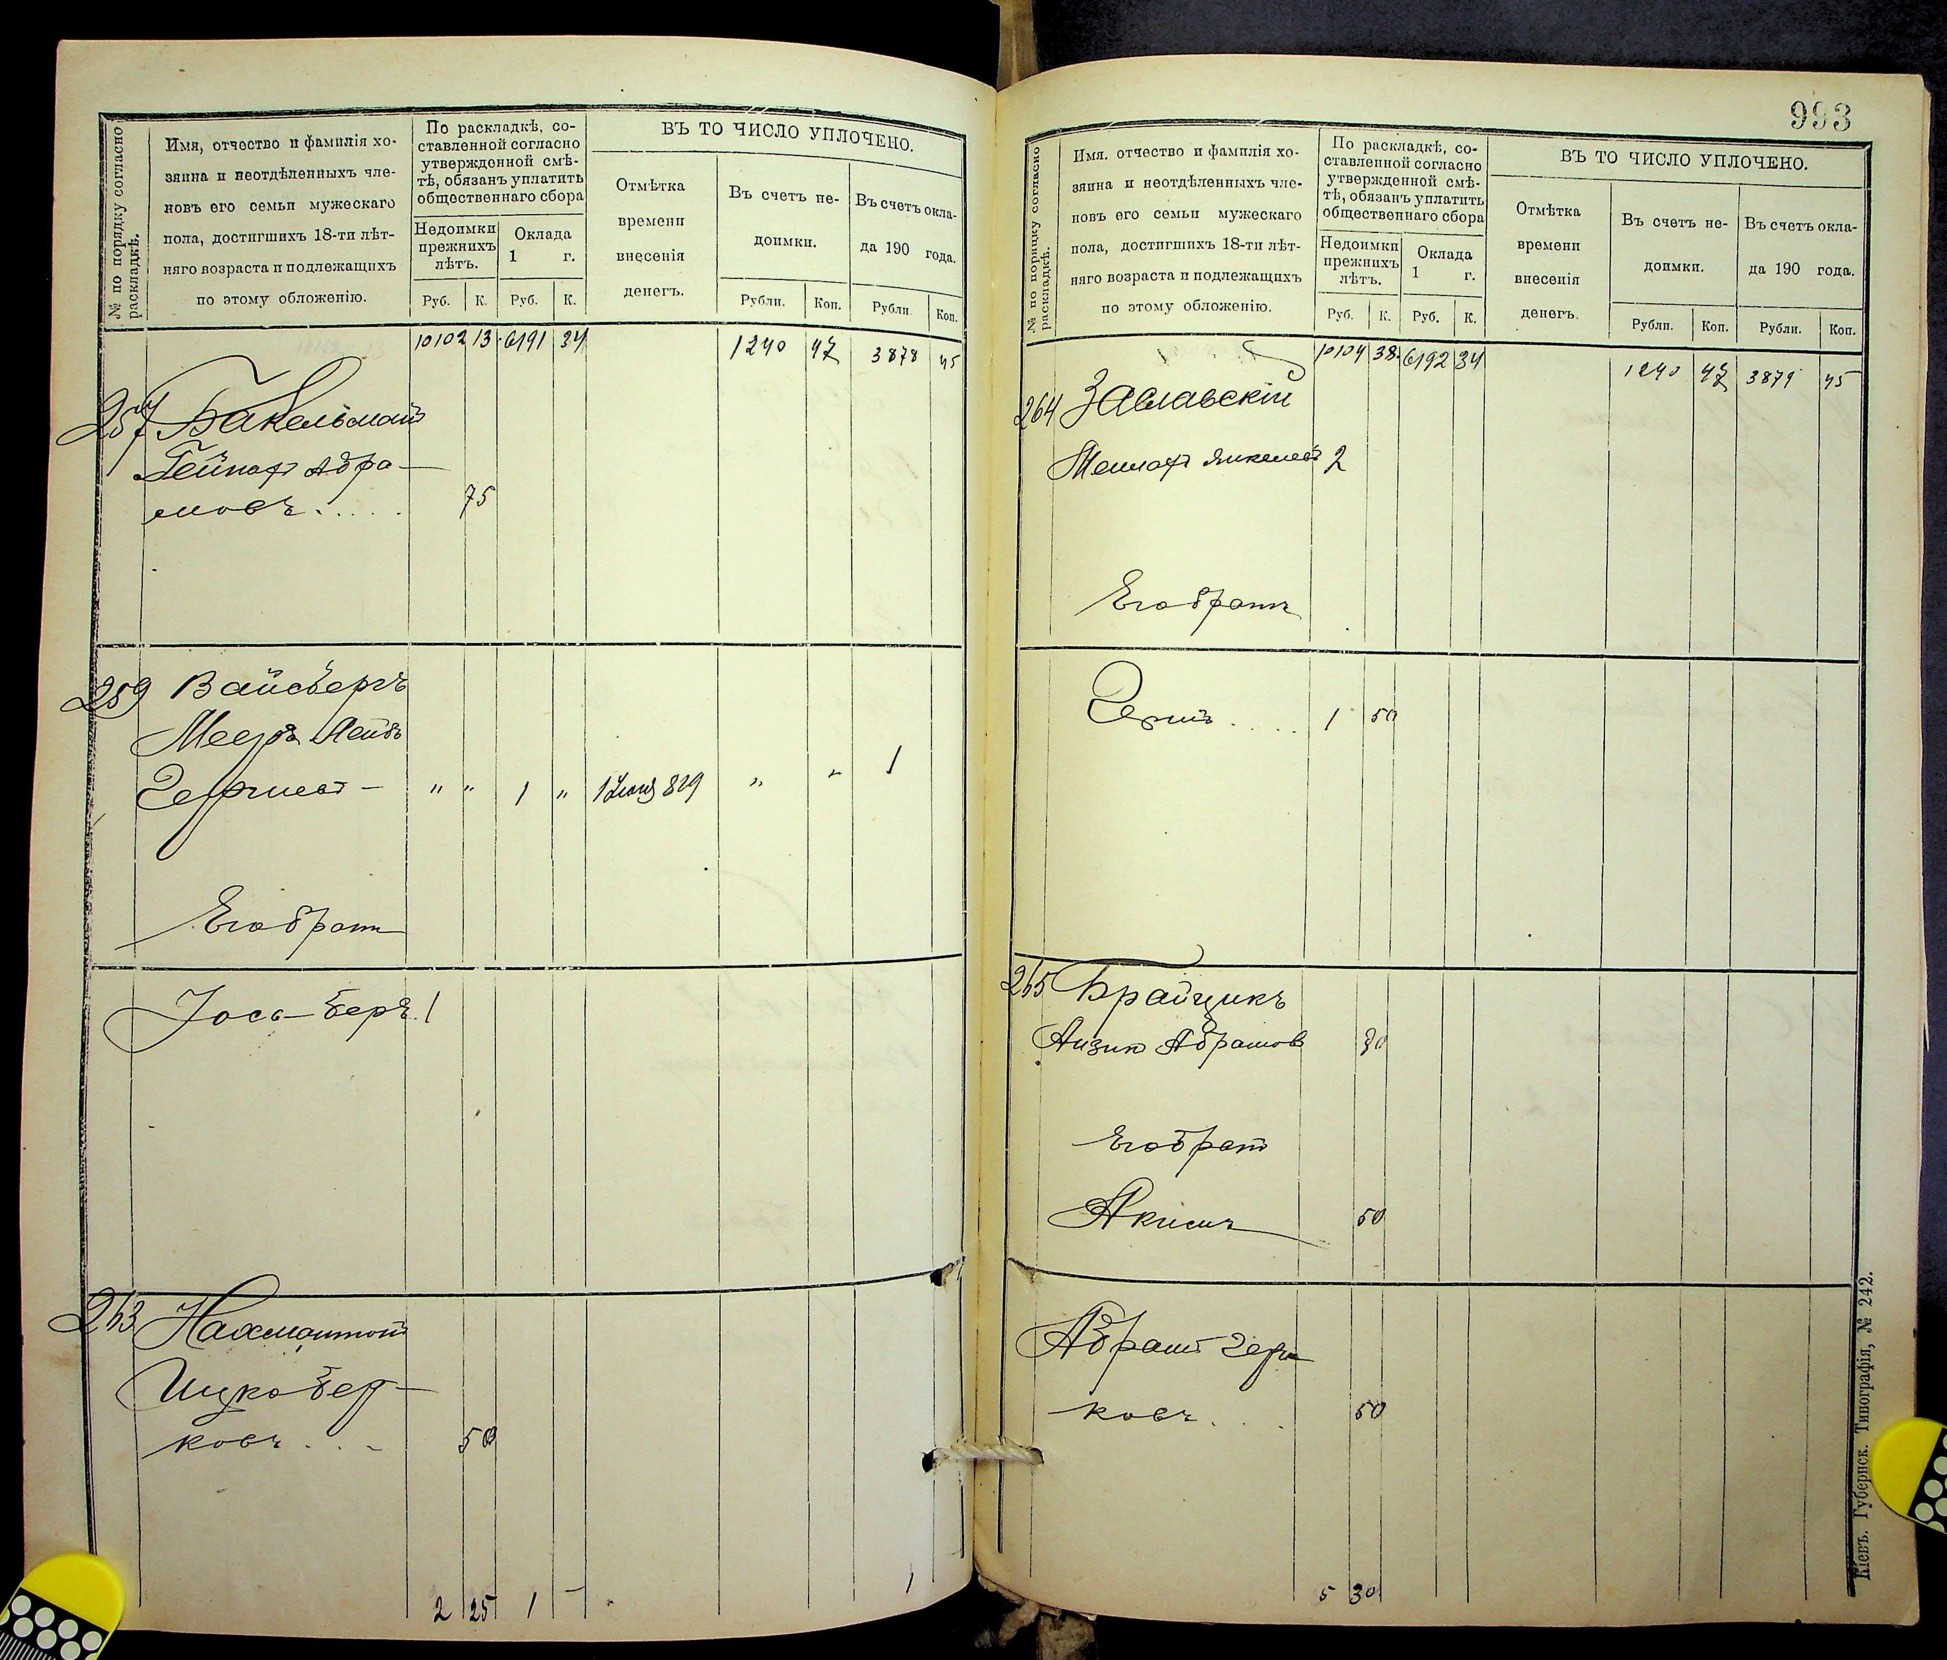 № по порядку согласно
раскладкѣ.
Имя, отчество и фамилія хо-
зяина и неотдѣленныхъ чле-
новъ его семьи мужескаго
пола, достигшихъ 18-ти лѣт-
няго возраста и подлежащихъ
по этому обложенію.
По раскладкѣ, со-
ставленной согласно
утвержденной смѣ-
тѣ, обязанъ уплатить
общественнаго сбора
Недоимки
прежнихъ
лѣтъ.
Оклада
1 г.
Руб. К. Руб. К.
ВЪ ТО ЧИСЛО УПЛОЧЕНО.
Отмѣтка
времени
внесенія
денегъ.
Въ счетъ не-
доимки.
Рубли. Коп.
Въ счетъ окла-
да 190 года.
Рубли. Коп.
10102 13 6191 34 1240 47 3878 45
257 Бакельманъ
Гейнахъ Абра-
мовъ..... 75
259 Вайсбергъ
Мееръ Лейбъ
Гершков - " " 1 " 1 Іюня 829 " " 1
Его братъ
Іось-Беръ. 1
263
Ицко Бер-
ковъ... 50
2 25 1 - 1
993
№ по порядку согласно
раскладкѣ.
Имя. отчество и фамилія хо-
зяина и неотдѣленныхъ чле-
новъ его семьи мужескаго
пола, достигшихъ 18-ти лѣт-
няго возраста и подлежащихъ
по этому обложенію.
По раскладкѣ, со-
ставленной согласно
утвержденной смѣ-
тѣ, обязанъ уплатить
общественнаго сбора
Недоимки
прежнихъ
лѣтъ.
Оклада
1 г.
Руб. К. Руб. К.
ВЪ ТО ЧИСЛО УПЛОЧЕНО.
Отмѣтка
времени
внесенія
денегъ.
Въ счетъ не-
доимки.
Рубли. Коп.
Въ счетъ окла-
да 190 года.
Рубли. Коп.
10104 38 6192 34 1240 47 3879 45
264 Заславскій
Янкелевъ 2
Его братъ
Гершъ.... 1 50
265 Брайщикъ
Айзик Абрамов 30
Его брат
Акивъ 50
Абрамъ Герш
ковъ.... 50
5 30
Кіевъ. Губернск. Типографія, № 242.